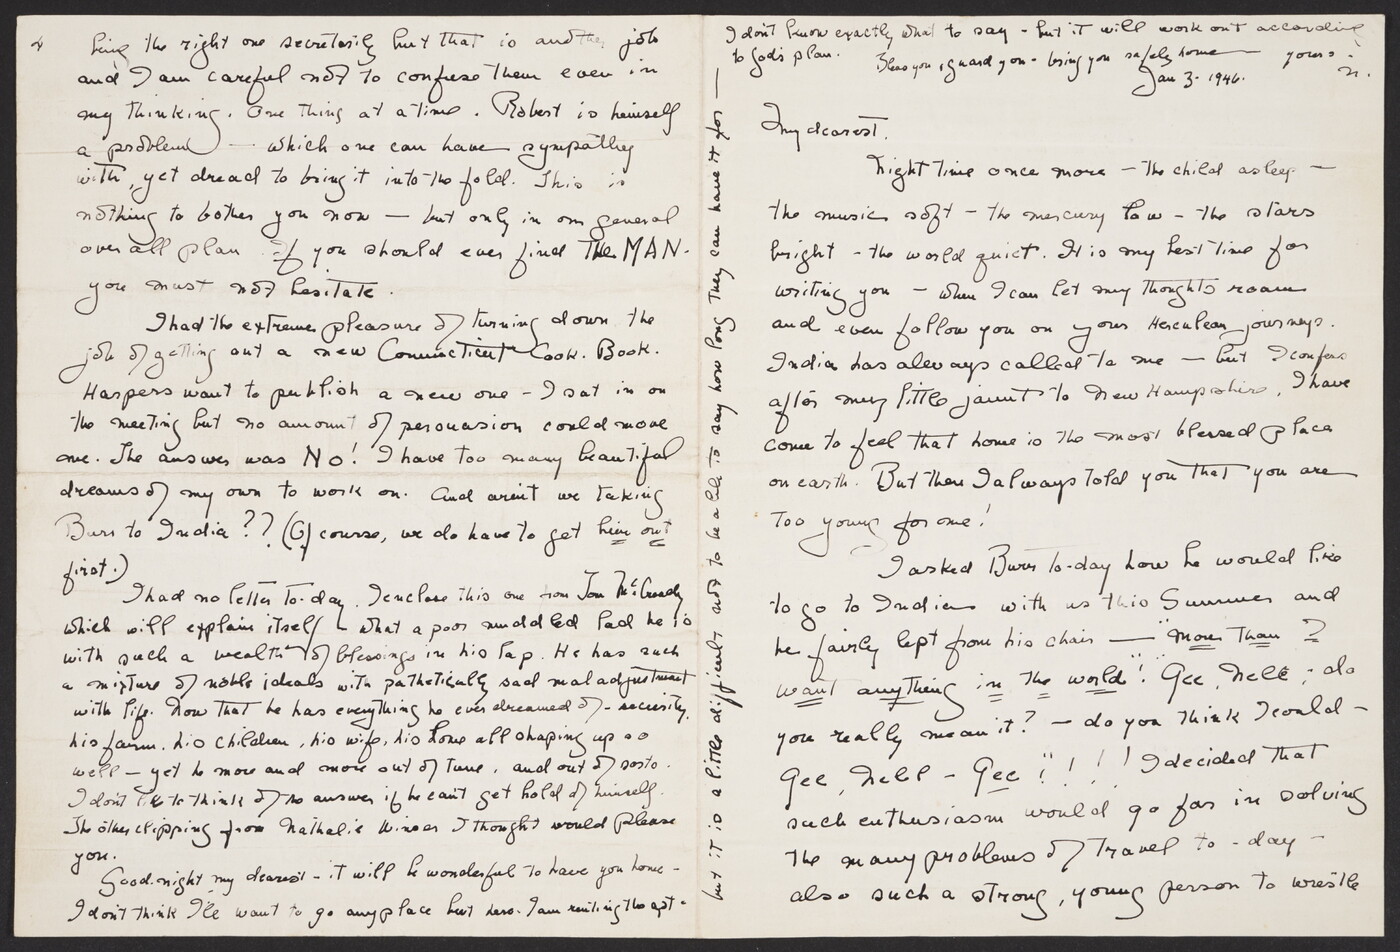 Jan 3 - 1946.
My dearest.
Night time once more — the child asleep —
the music soft - the mercury low - the stars
bright - the world quiet. It is my best time for
writing you — when I can let my thoughts roam
and even follow you on your Herculean journeys.
India has always called to me — but I confess
after my little jaunt to New Hampshire, I have
come to feel that home is the most blessed place
on earth. But then I always told you that you are
too young for me!
I asked Burr to-day how he would like
to go to India with us this Summer and
he fairly lept from his chair — "more than I
want anything in the world"! Gee, Nell, do
you really mean it? — do you think I could —
Gee, Nell - Gee"!!! I decided that
such enthusiasm would go far in solving
the many problems of travel to-day -
also such a strong, young person to wrestle
4
being the right one secretarily but that is another job
and I am careful not to confuse them even in
my thinking. One thing at a time. Robert is himself
a problem — which one can have sympathy
with, yet dread to bring it into the fold. This is
nothing to bother you now — but only in our general
over all plan. If you should ever find The MAN.
you must not hesitate.
I had the extreme pleasure of turning down the
job of getting out a new Connecticut Cook. Book.
Harpers want to publish a new one - I sat in on
the meeting but no amount of persuasion could move
me. The answer was No! I have too many beautiful
dreams of my own to work on. And aren't we taking
Burr to India?? (Of course, we do have to get him out
first.)
I had no letter to-day. I enclose this one from Tom McCready
which will explain itself - what a poor muddled lad he is
with such a wealth of blessings in his lap. He has such
a mixture of noble ideals with pathetically sad maladjustment
with life. Now that he has everything he ever dreamed of - security,
his farm, his children, his wife, his home all shaping up so
well — yet he more and more out of tune, and out of sorts.
I don't like to think of no answer if he can't get hold of himself.
The other clipping from Nathalie I thought would please
you.
Good-night my dearest - it will be wonderful to have you home -
I don't think I'll want to go anyplace but here. I am renting the apt -
but it is a little difficult not to be able to say how long they can have it for —
I don't know exactly what to say - but it will work out according
to God's plan.
Bless you, guard you - bring you safely home — yours -
n.